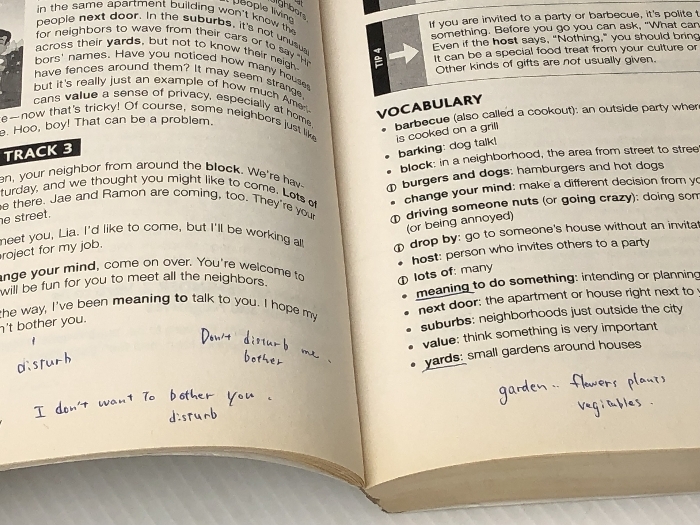 in the same apartment building won't know the
people next door. In the suburbs, it's not unusual
for neighbors to wave from their cars or to say "Hi"
across their yards, but not to know their neigh-
bors' names. Have you noticed how many houses
have fences around them? It may seem strange,
but it's really just an example of how much Ameri-
cans value a sense of privacy, especially at home.
—now that's tricky! Of course, some neighbors just like
Hoo, boy! That can be a problem.
TRACK 3
your neighbor from around the block. We're hav-
and we thought you might like to come. Lots of
there. Jae and Ramon are coming, too. They're your
street.
meet you, Lia. I'd like to come, but I'll be working all
project for my job.
your mind, come on over. You're welcome to
will be fun for you to meet all the neighbors.
the way, I've been meaning to talk to you. I hope my
bother you.
disturb
Don't disturb me.
bother
I don't want To bother you.
disturb
TIP 4
If you are invited to a party or barbecue, it's polite
something. Before you go you can ask, "What can
Even if the host says, "Nothing," you should bring
It can be a special food treat from your culture or
Other kinds of gifts are not usually given.
VOCABULARY
• barbecue (also called a cookout): an outside party
is cooked on a grill
• barking: dog talk!
• block: in a neighborhood, the area from street to
burgers and dogs: hamburgers and hot dogs
• change your mind: make a different decision from
driving someone nuts (or going crazy): doing
(or being annoyed)
drop by: go to someone's house without an
• host: person who invites others to a party
lots of: many
• meaning to do something: intending or planning
• next door: the apartment or house right next to
• suburbs: neighborhoods just outside the city
• value: think something is very important
• yards: small gardens around houses
garden.. flowers plants
vegitables.